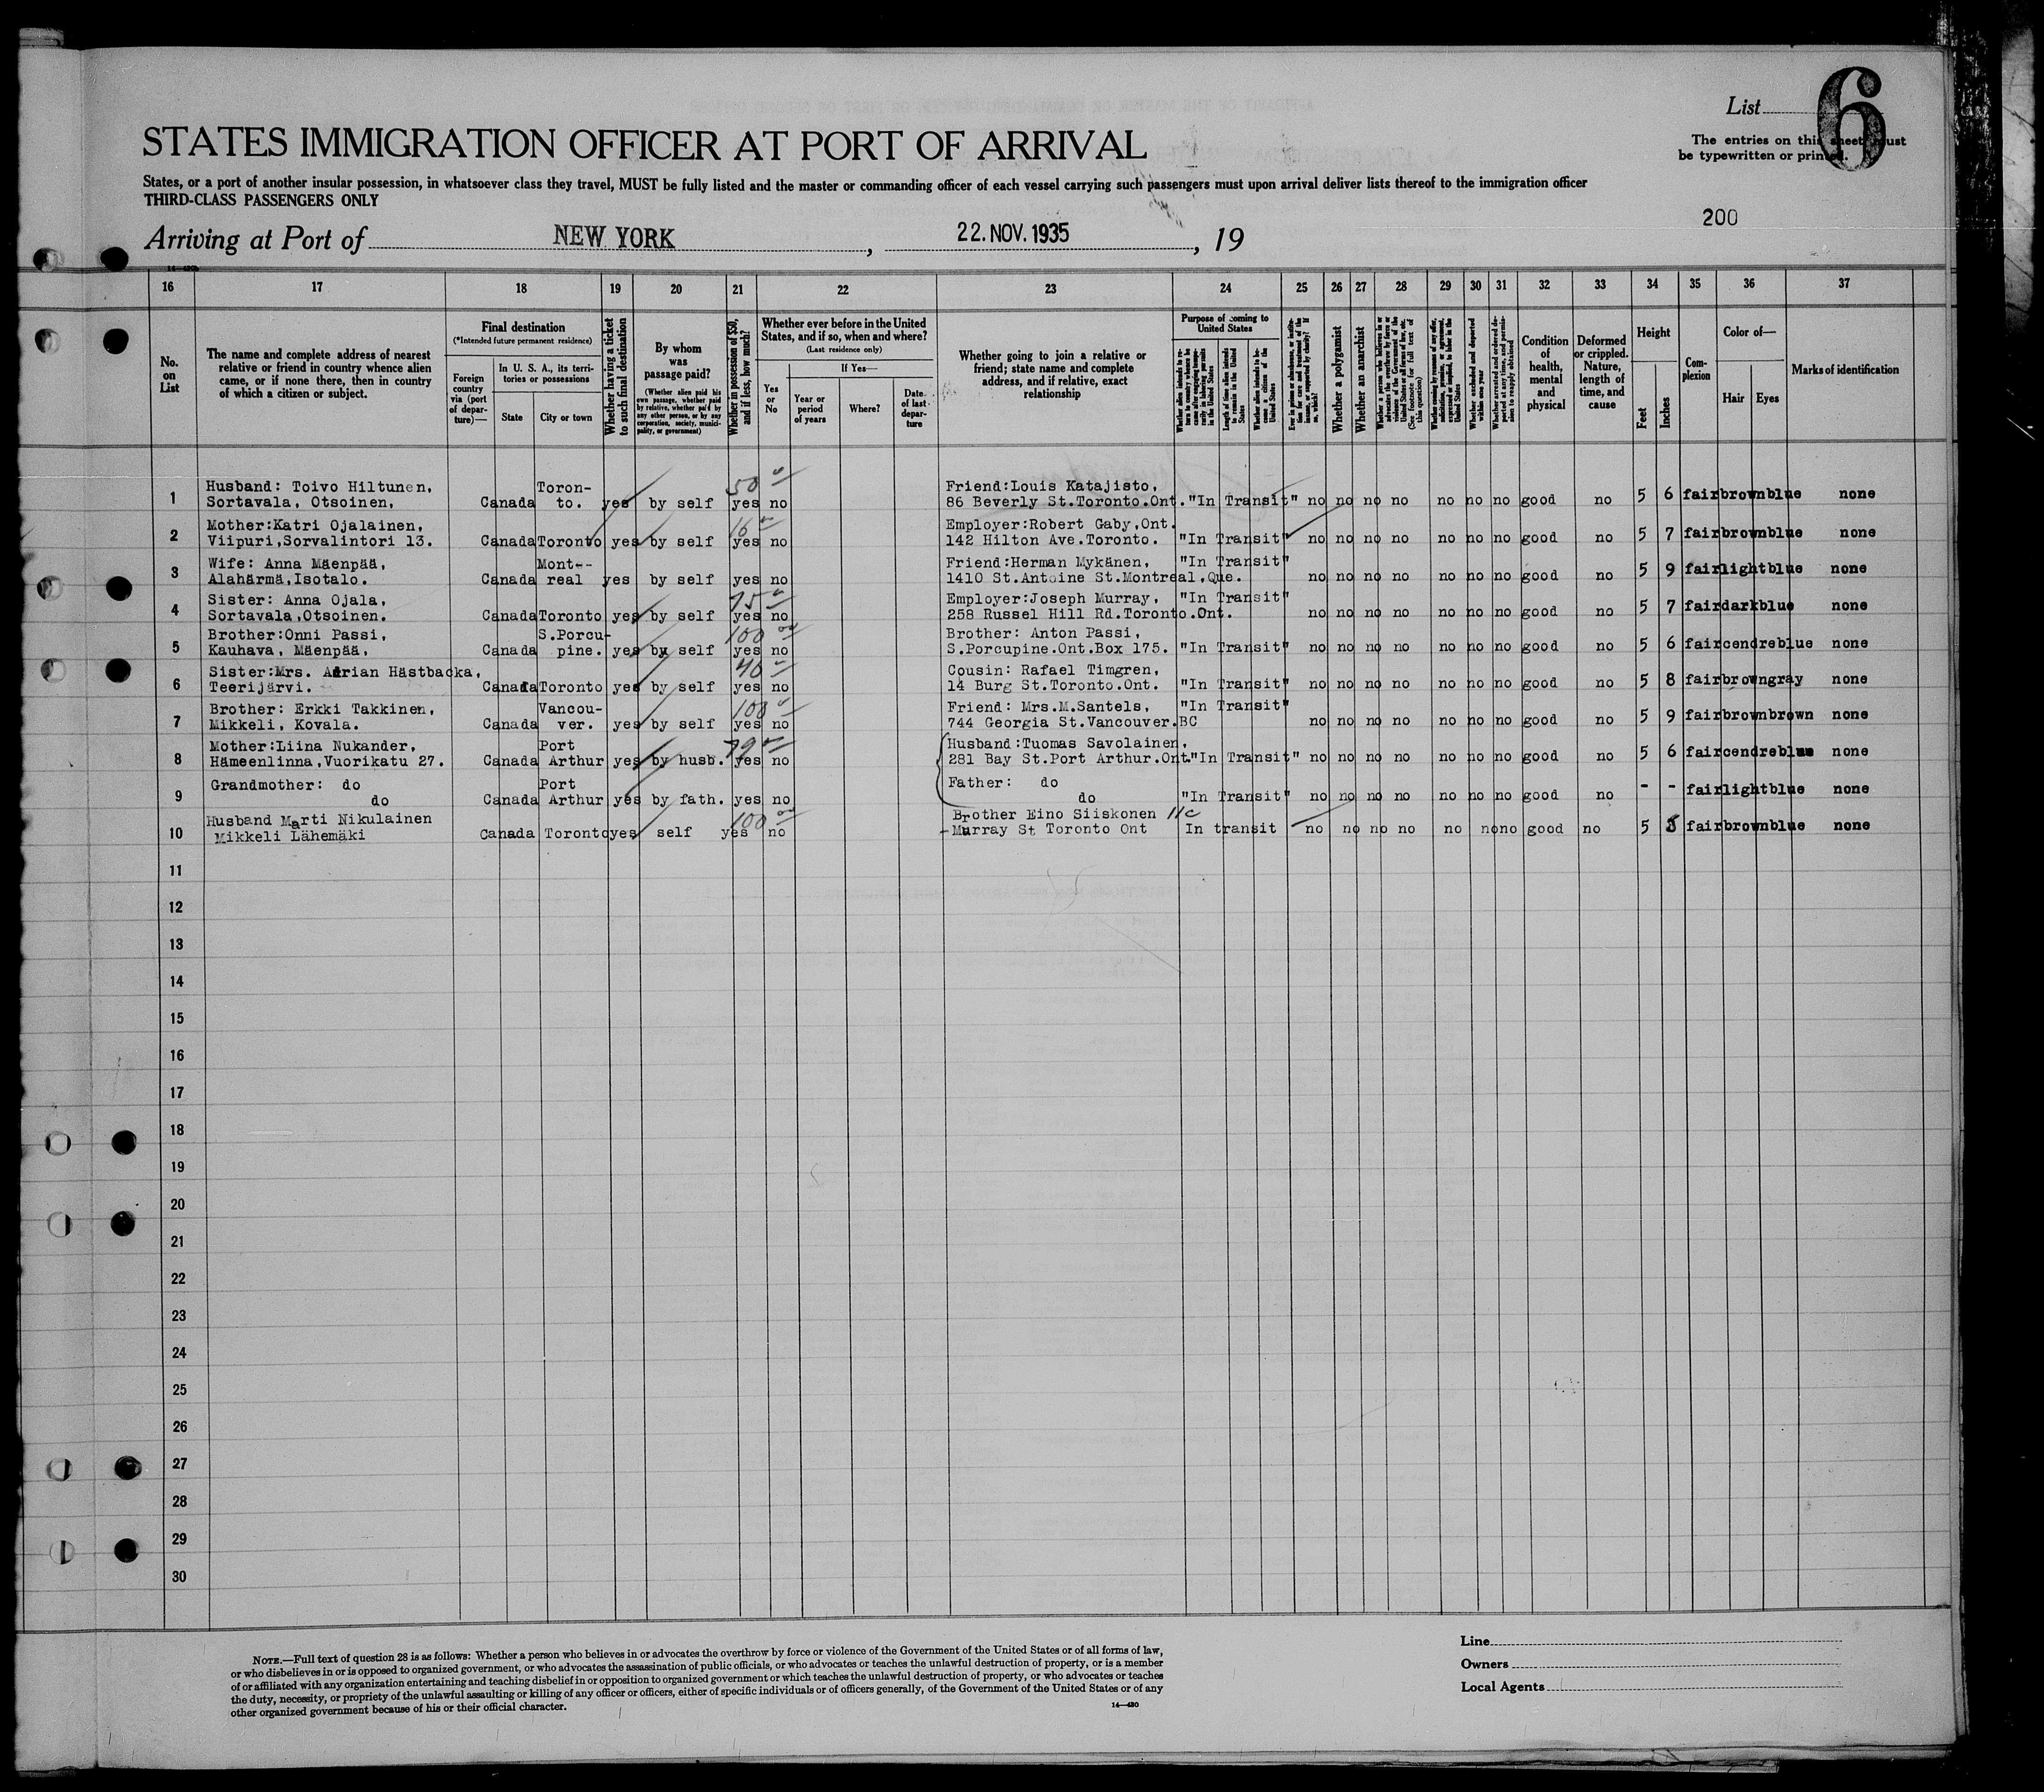 List 6
STATES IMMIGRATION OFFICER AT PORT OF ARRIVAL
The entries on this sheet must
be typewritten or printed.
States, or a port of another insular possession, in whatsoever class they travel, MUST be fully listed and the master or commanding officer of each vessel carrying such passengers must upon arrival deliver lists thereof to the immigration officer
THIRD-CLASS PASSENGERS ONLY
200
Arriving at Port of NEW YORK , 22. NOV. 1935 , 19
16 17 18 19 20 21 22 23 24 25 26 27 28 29 30 31 32 33 34 35 36 37
No. on List
The name and complete address of nearest relative or friend in country whence alien came, or if none there, then in country of which a citizen or subject.
Final destination
(*Intended future permanent residence)
Foreign country via (port of departure)—
In U. S. A., its territories or possessions
State
City or town
Whether having a ticket to such final destination
By whom was passage paid?
(Whether alien paid his own passage, whether paid by relative, whether paid by any other person, or by any corporation, society, municipality, or government)
Whether in possession of $50, and if less, how much?
Whether ever before in the United States, and if so, when and where?
(Last residence only)
Yes or No
If Yes—
Year or period of years
Where?
Date of last departure
Whether going to join a relative or friend; state name and complete address, and if relative, exact relationship
Purpose of coming to United States
Length of time alien intends to remain in the United States
Whether alien intends to become a citizen of the United States
Whether a polygamist
Whether an anarchist
Condition of health, mental and physical
Deformed or crippled. Nature, length of time, and cause
Height
Feet
Inches
Complexion
Color of—
Hair
Eyes
Marks of identification
Husband: Toivo Hiltunen, Toron- 50 Friend:Louis Katajisto,
1 Sortavala, Otsoinen, Canada to. yes by self yes no 86 Beverly St.Toronto.Ont. "In Transit" no no no no no no no good no 5 6 fair brown blue none
Mother:Katri Ojalainen, 16 Employer:Robert Gaby,Ont.
2 Viipuri,Sorvalintori 13. Canada Toronto yes by self yes no 142 Hilton Ave.Toronto. "In Transit" no no no no no no no good no 5 7 fair brown blue none
Wife: Anna Mäenpää, Mont-- Friend:Herman Mykänen, "In Transit"
3 Alahärmä,Isotalo. Canada real yes by self yes no 1410 St.Antoine St.Montreal,Que. no no no no no no no good no 5 9 fair light blue none
Sister: Anna Ojala, 75 Employer:Joseph Murray, "In Transit"
4 Sortavala,Otsoinen. Canada Toronto yes by self yes no 258 Russel Hill Rd.Toronto.Ont. no no no no no no no good no 5 7 fair dark blue none
Brother:Onni Passi, S.Porcu- 100 Brother: Anton Passi,
5 Kauhava, Mäenpää, Canada pine. yes by self yes no S.Porcupine.Ont.Box 175. "In Transit" no no no no no no no good no 5 6 fair cendre blue none
Sister:Mrs. Adrian Hästbacka, 40 Cousin: Rafael Timgren,
6 Teerijärvi. Canada Toronto yes by self yes no 14 Burg St.Toronto.Ont. "In Transit" no no no no no no no good no 5 8 fair brown gray none
Brother: Erkki Takkinen, Vancou- 100 Friend: Mrs.M.Santels, "In Transit"
7 Mikkeli, Kovala. Canada ver. yes by self yes no 744 Georgia St.Vancouver.BC no no no no no no no good no 5 9 fair brown brown none
Mother:Liina Nukander, Port 79 Husband:Tuomas Savolainen,
8 Hämeenlinna,Vuorikatu 27. Canada Arthur yes by husb. yes no 281 Bay St.Port Arthur.Ont. "In Transit" no no no no no no no good no 5 6 fair cendre blue none
Grandmother: do Port Father: do
9 do Canada Arthur yes by fath. yes no do "In Transit" no no no no no no no good no - - fair light blue none
Husband Marti Nikulainen 100 Brother Eino Siiskonen 11c
10 Mikkeli Lähemäki Canada Toronto yes self yes no Murray St Toronto Ont In transit no no no no no no no good no 5 5 fair brown blue none
11
12
13
14
15
16
17
18
19
20
21
22
23
24
25
26
27
28
29
30
NOTE.—Full text of question 28 is as follows: Whether a person who believes in or advocates the overthrow by force or violence of the Government of the United States or of all forms of law,
or who disbelieves in or is opposed to organized government, or who advocates the assassination of public officials, or who advocates or teaches the unlawful destruction of property, or is a member
of or affiliated with any organization entertaining and teaching disbelief in or opposition to organized government or which teaches the unlawful destruction of property, or who advocates or teaches
the duty, necessity, or propriety of the unlawful assaulting or killing of any officer or officers, either of specific individuals or of officers generally, of the Government of the United States or of any
other organized government because of his or their official character.
14—430
Line
Owners
Local Agents